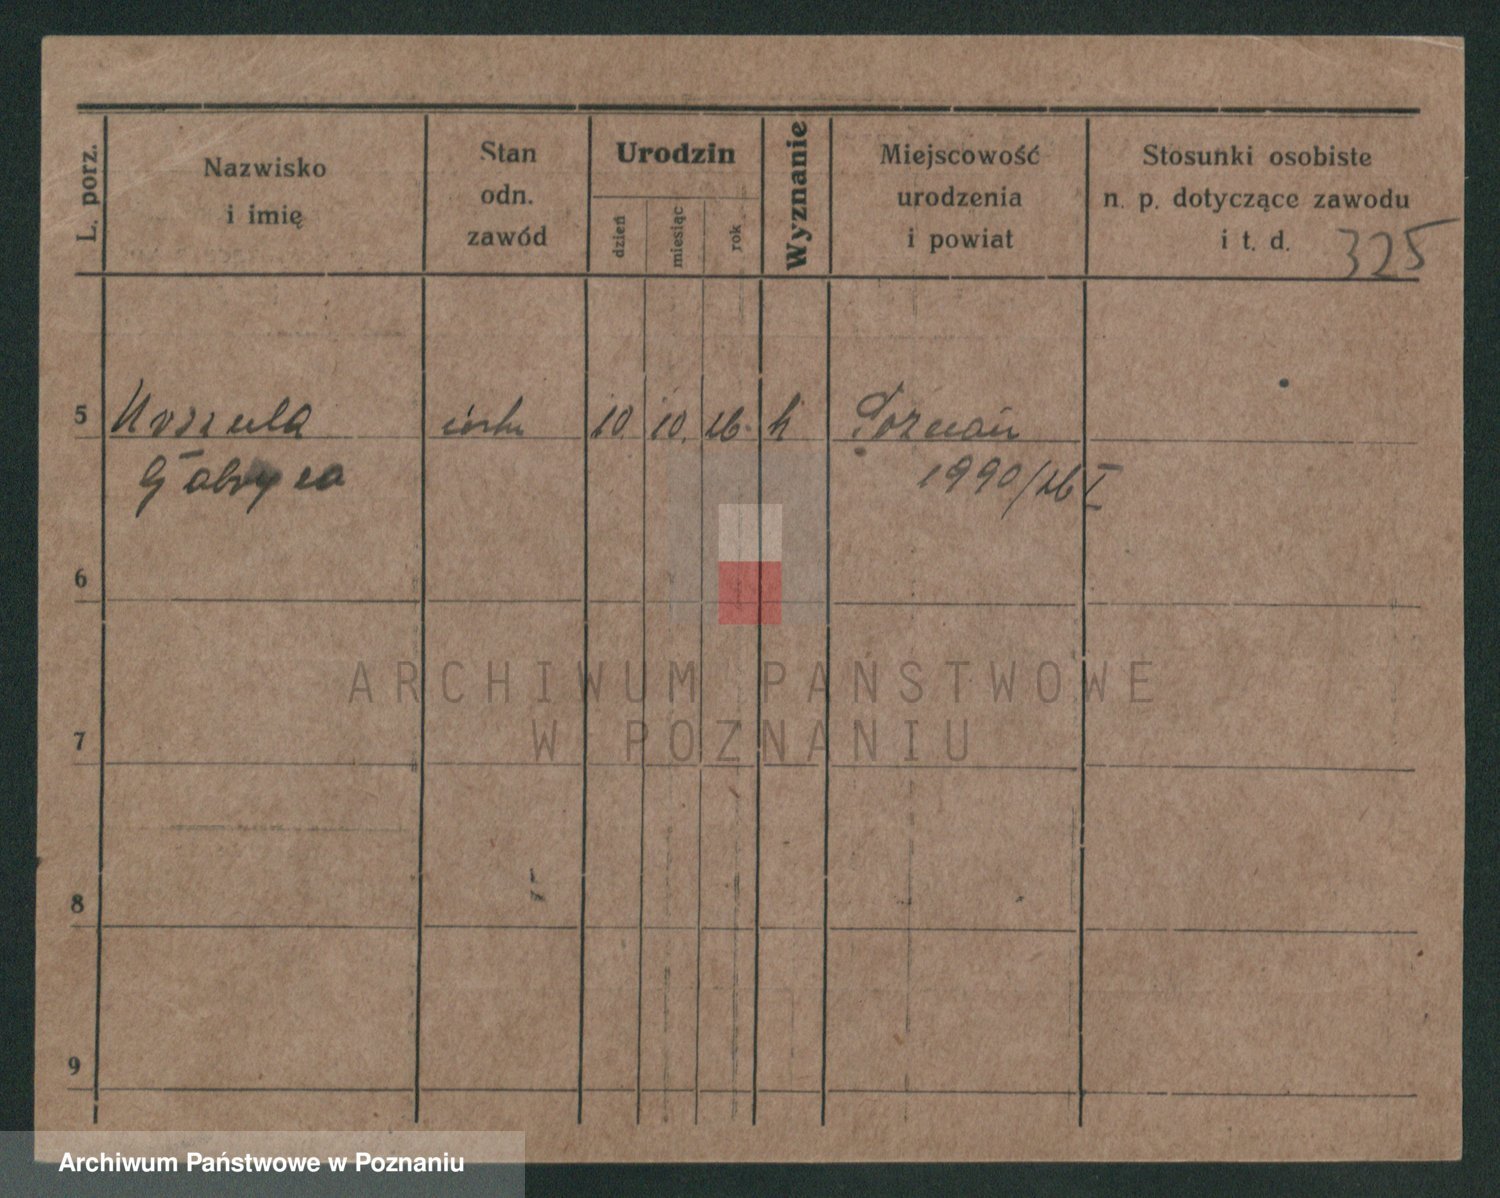 L. porz.
Nazwisko
i imię
Stan
odn.
zawód
Urodzin
dzień
miesiąc
rok
Wyznanie
Miejscowość
urodzenia
i powiat
Stosunki osobiste
n. p. dotyczące zawodu
i t. d.
325
5 Urszula córka 10. 10. 26. k Poznań
1990/26 I
6
ARCHIWUM PAŃSTWOWE
W POZNANIU
7
8
9
Archiwum Państwowe w Poznaniu